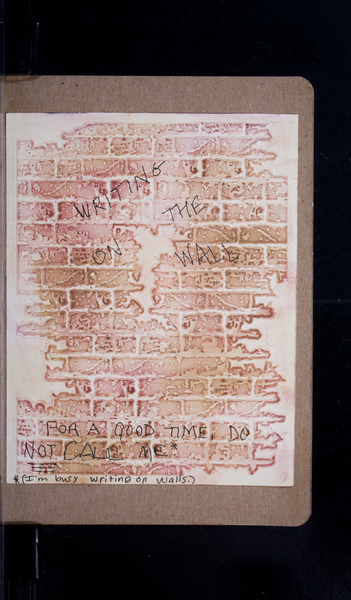 WRITING
THE
ON WALL
FOR A GOOD TIME, DO
NOT CALL ME*
*(I'm busy writing on walls.)